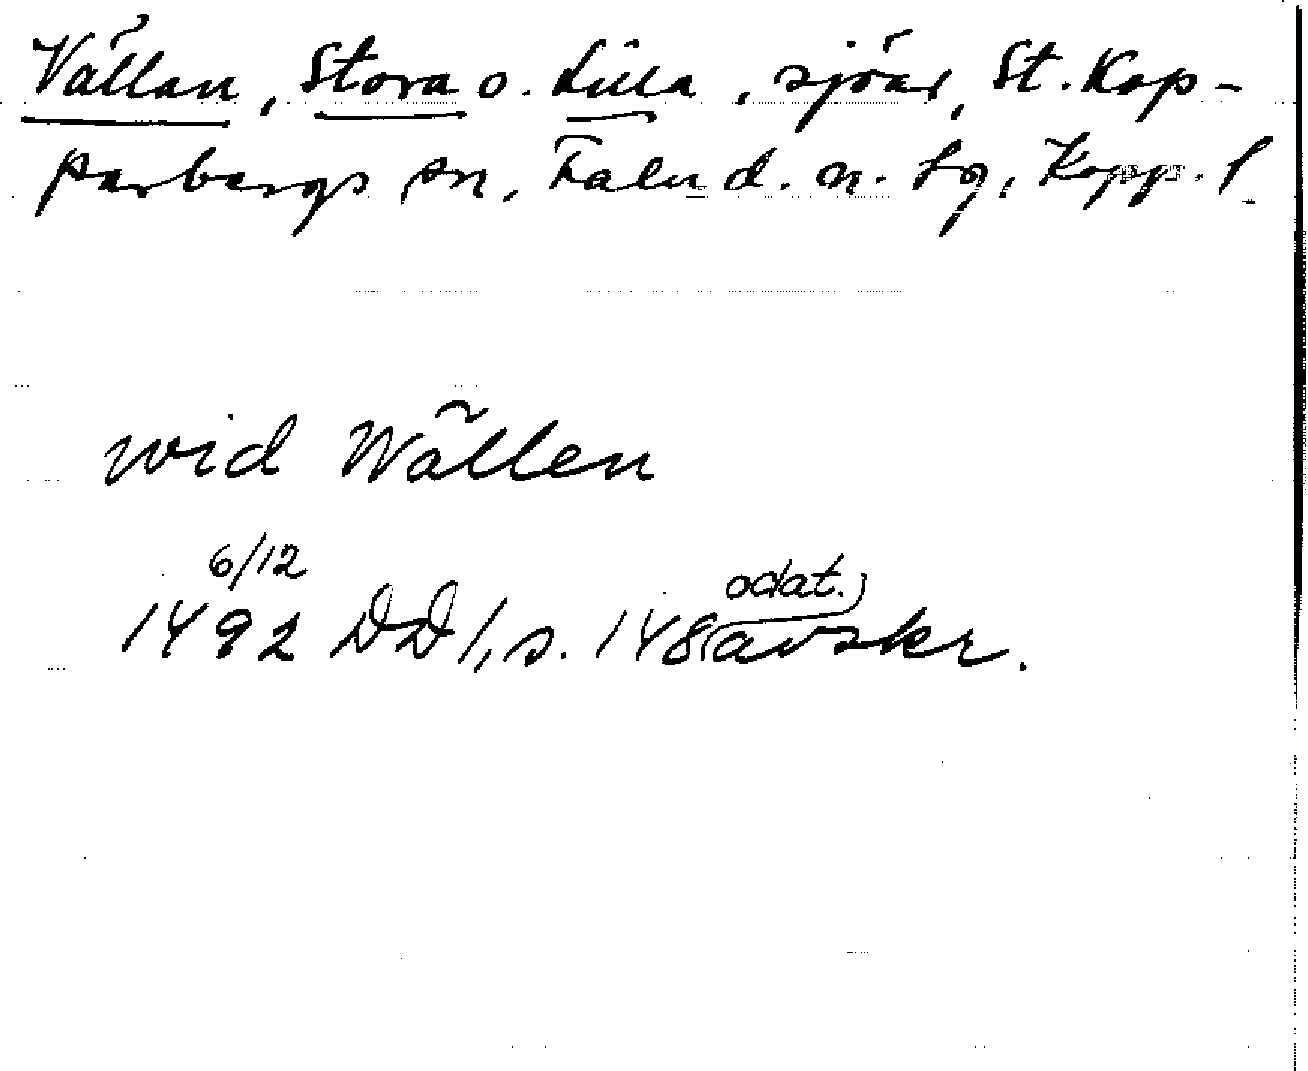 Vällan, Stora o. Lilla, sjöar, St. Kop-
parbergs sn, Falu d. n. lg, Kopp. l.
wid Wällen
6/12
1492 DD 1, s. 148 (odat. avskr.